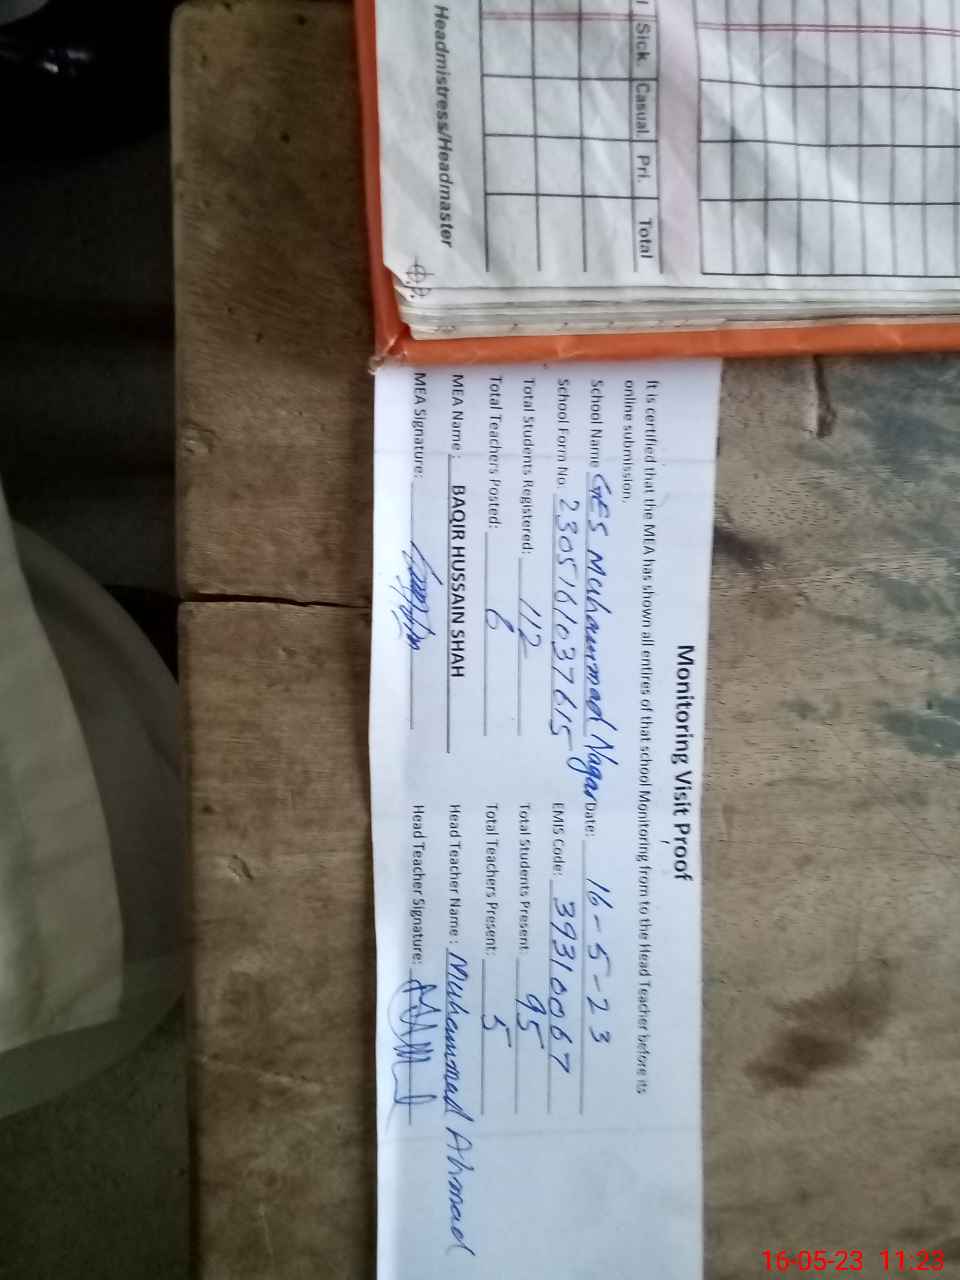 Sick. Casual. Pri. Total
Headmistress/Headmaster
Monitoring Visit Proof
It is certified that the MEA has shown all entires of that school Monitoring from to the Head Teacher before its
online submission.
School Name GES Muhammad Nagar Date: 16-5-23
School Form No. 2305161037615 EMIS Code: 39310067
Total Students Registered: 112 Total Students Present: 95
Total Teachers Posted: 6 Total Teachers Present: 5
MEA Name : BAQIR HUSSAIN SHAH Head Teacher Name : Muhammad Ahmad
MEA Signature: Head Teacher Signature:
16-05-23 11:23